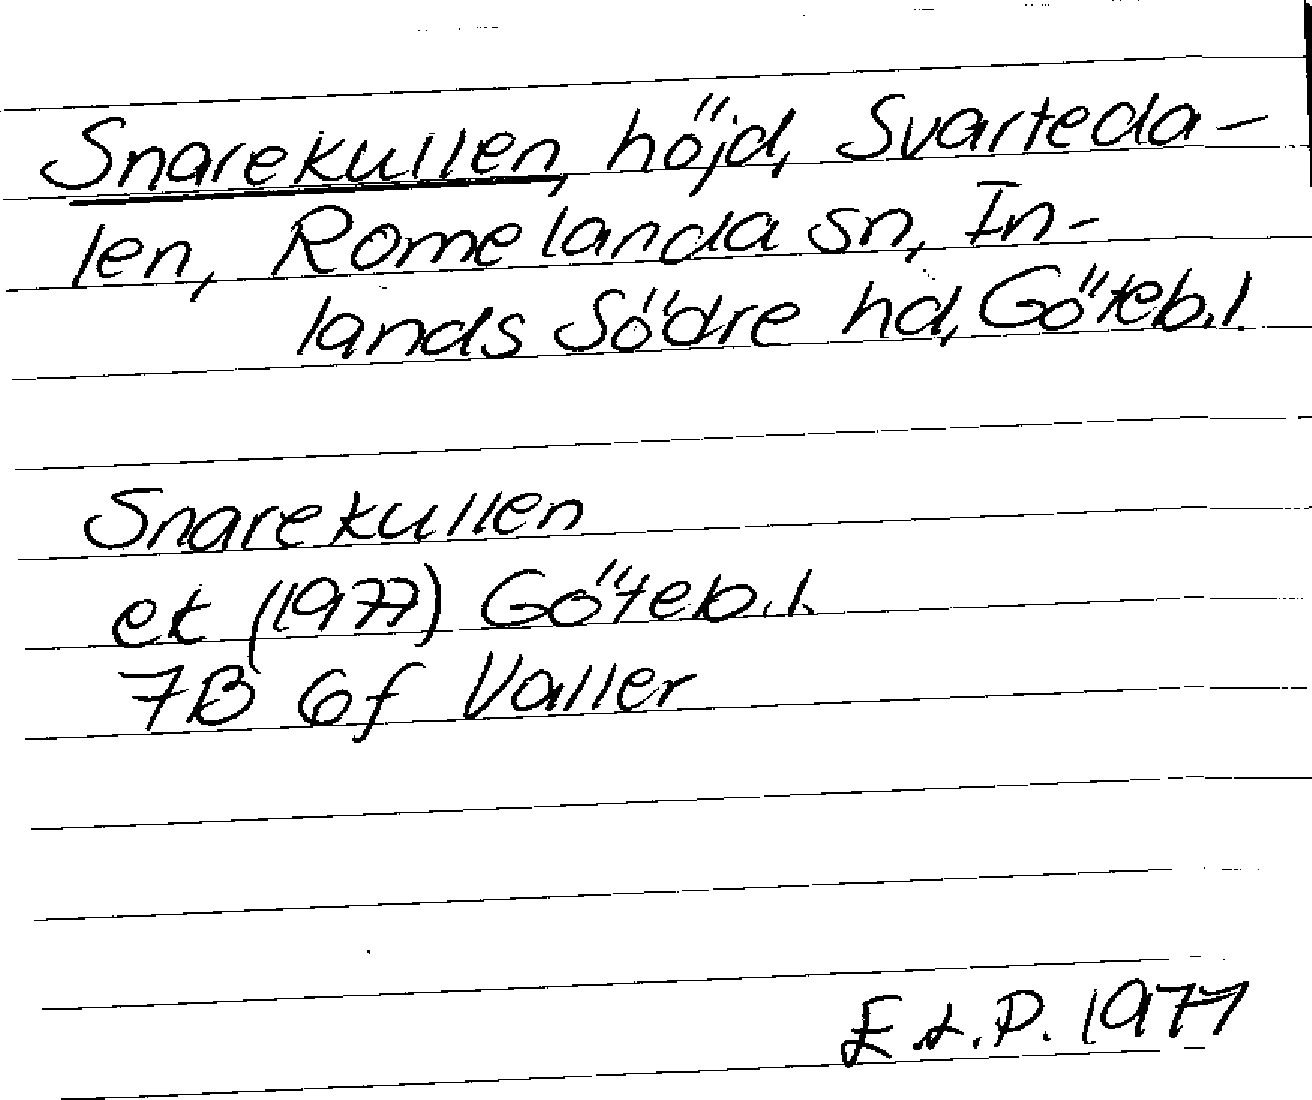 Snarekullen, höjd, Svarteda-
len, Romelanda sn, In-
lands Södre hd, Göteb.l.
Snarekullen
ek (1977) Göteb.l.
7B 6f Valler
E.L.P. 1977